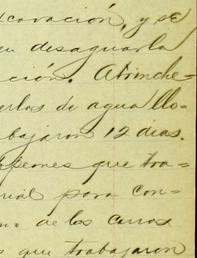 cavación, y se
desaguarla
ción. Atrinche-
erlas de agua llo-
abajaron 12 dias.
peones que tra-
rial para con-
de los carros
s que trabajaron